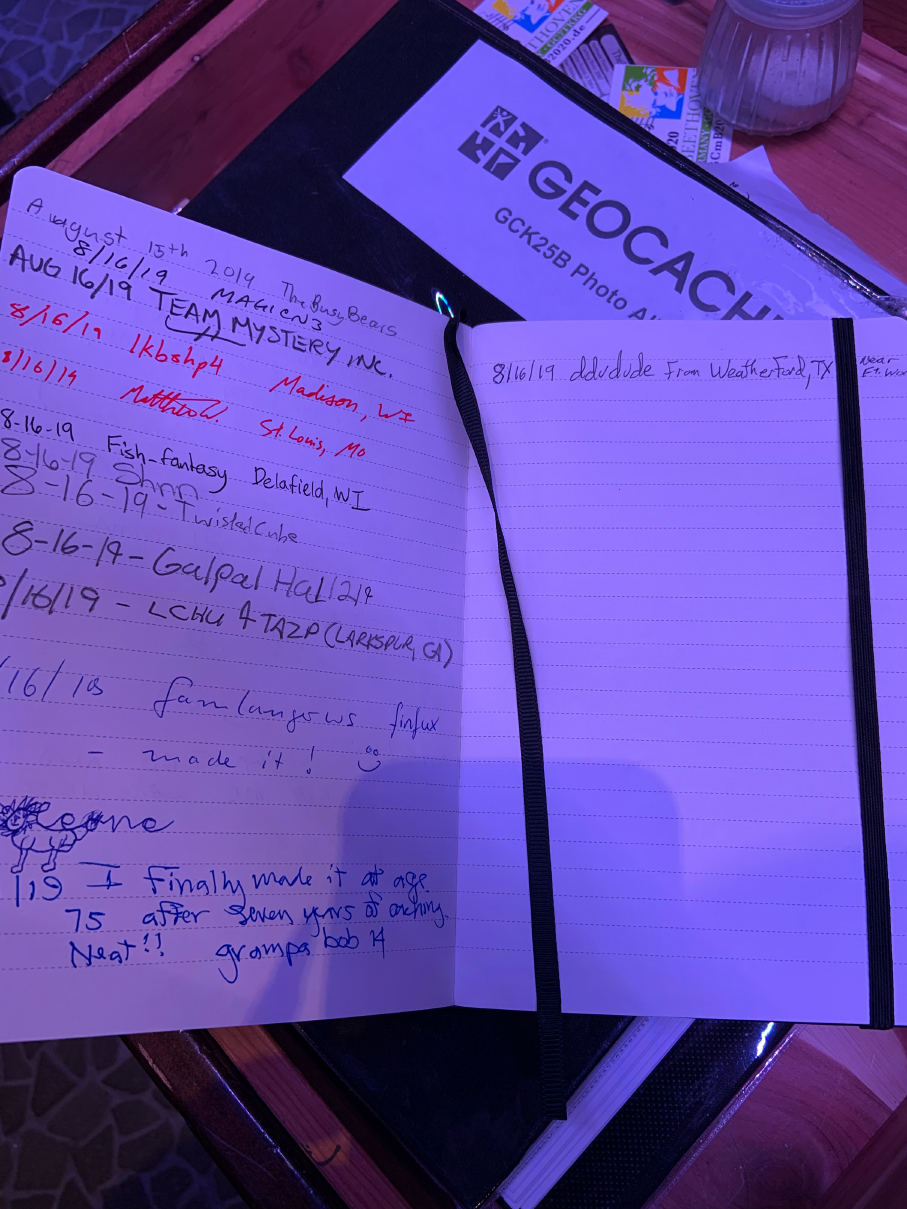 THOVEN
2020.de
2020
BEETHOVEN
GEOCACHI
GCK25B Photo Al
August 15th 2019 The Busy Bears
8/16/19 MAGICN3
AUG 16/19 TEAM MYSTERY INC.
8/16/19 lkbshp4 Madison, WI
8/16/19 St. Louis, Mo
8-16-19 Fish-fantasy Delafield, WI
8-16-19
8-16-19 - TwistedCube
8-16-19 - Galpal Hal 1219
/16/19 - LCHU & TAZP (LARKSPUR, CA)
/16/19
- made it!
/19 I finally made it at age
75 after seven years of caching.
Neat!! grampa bob H
8/16/19 ddudude From Weatherford, TX Near
Ft. Wor